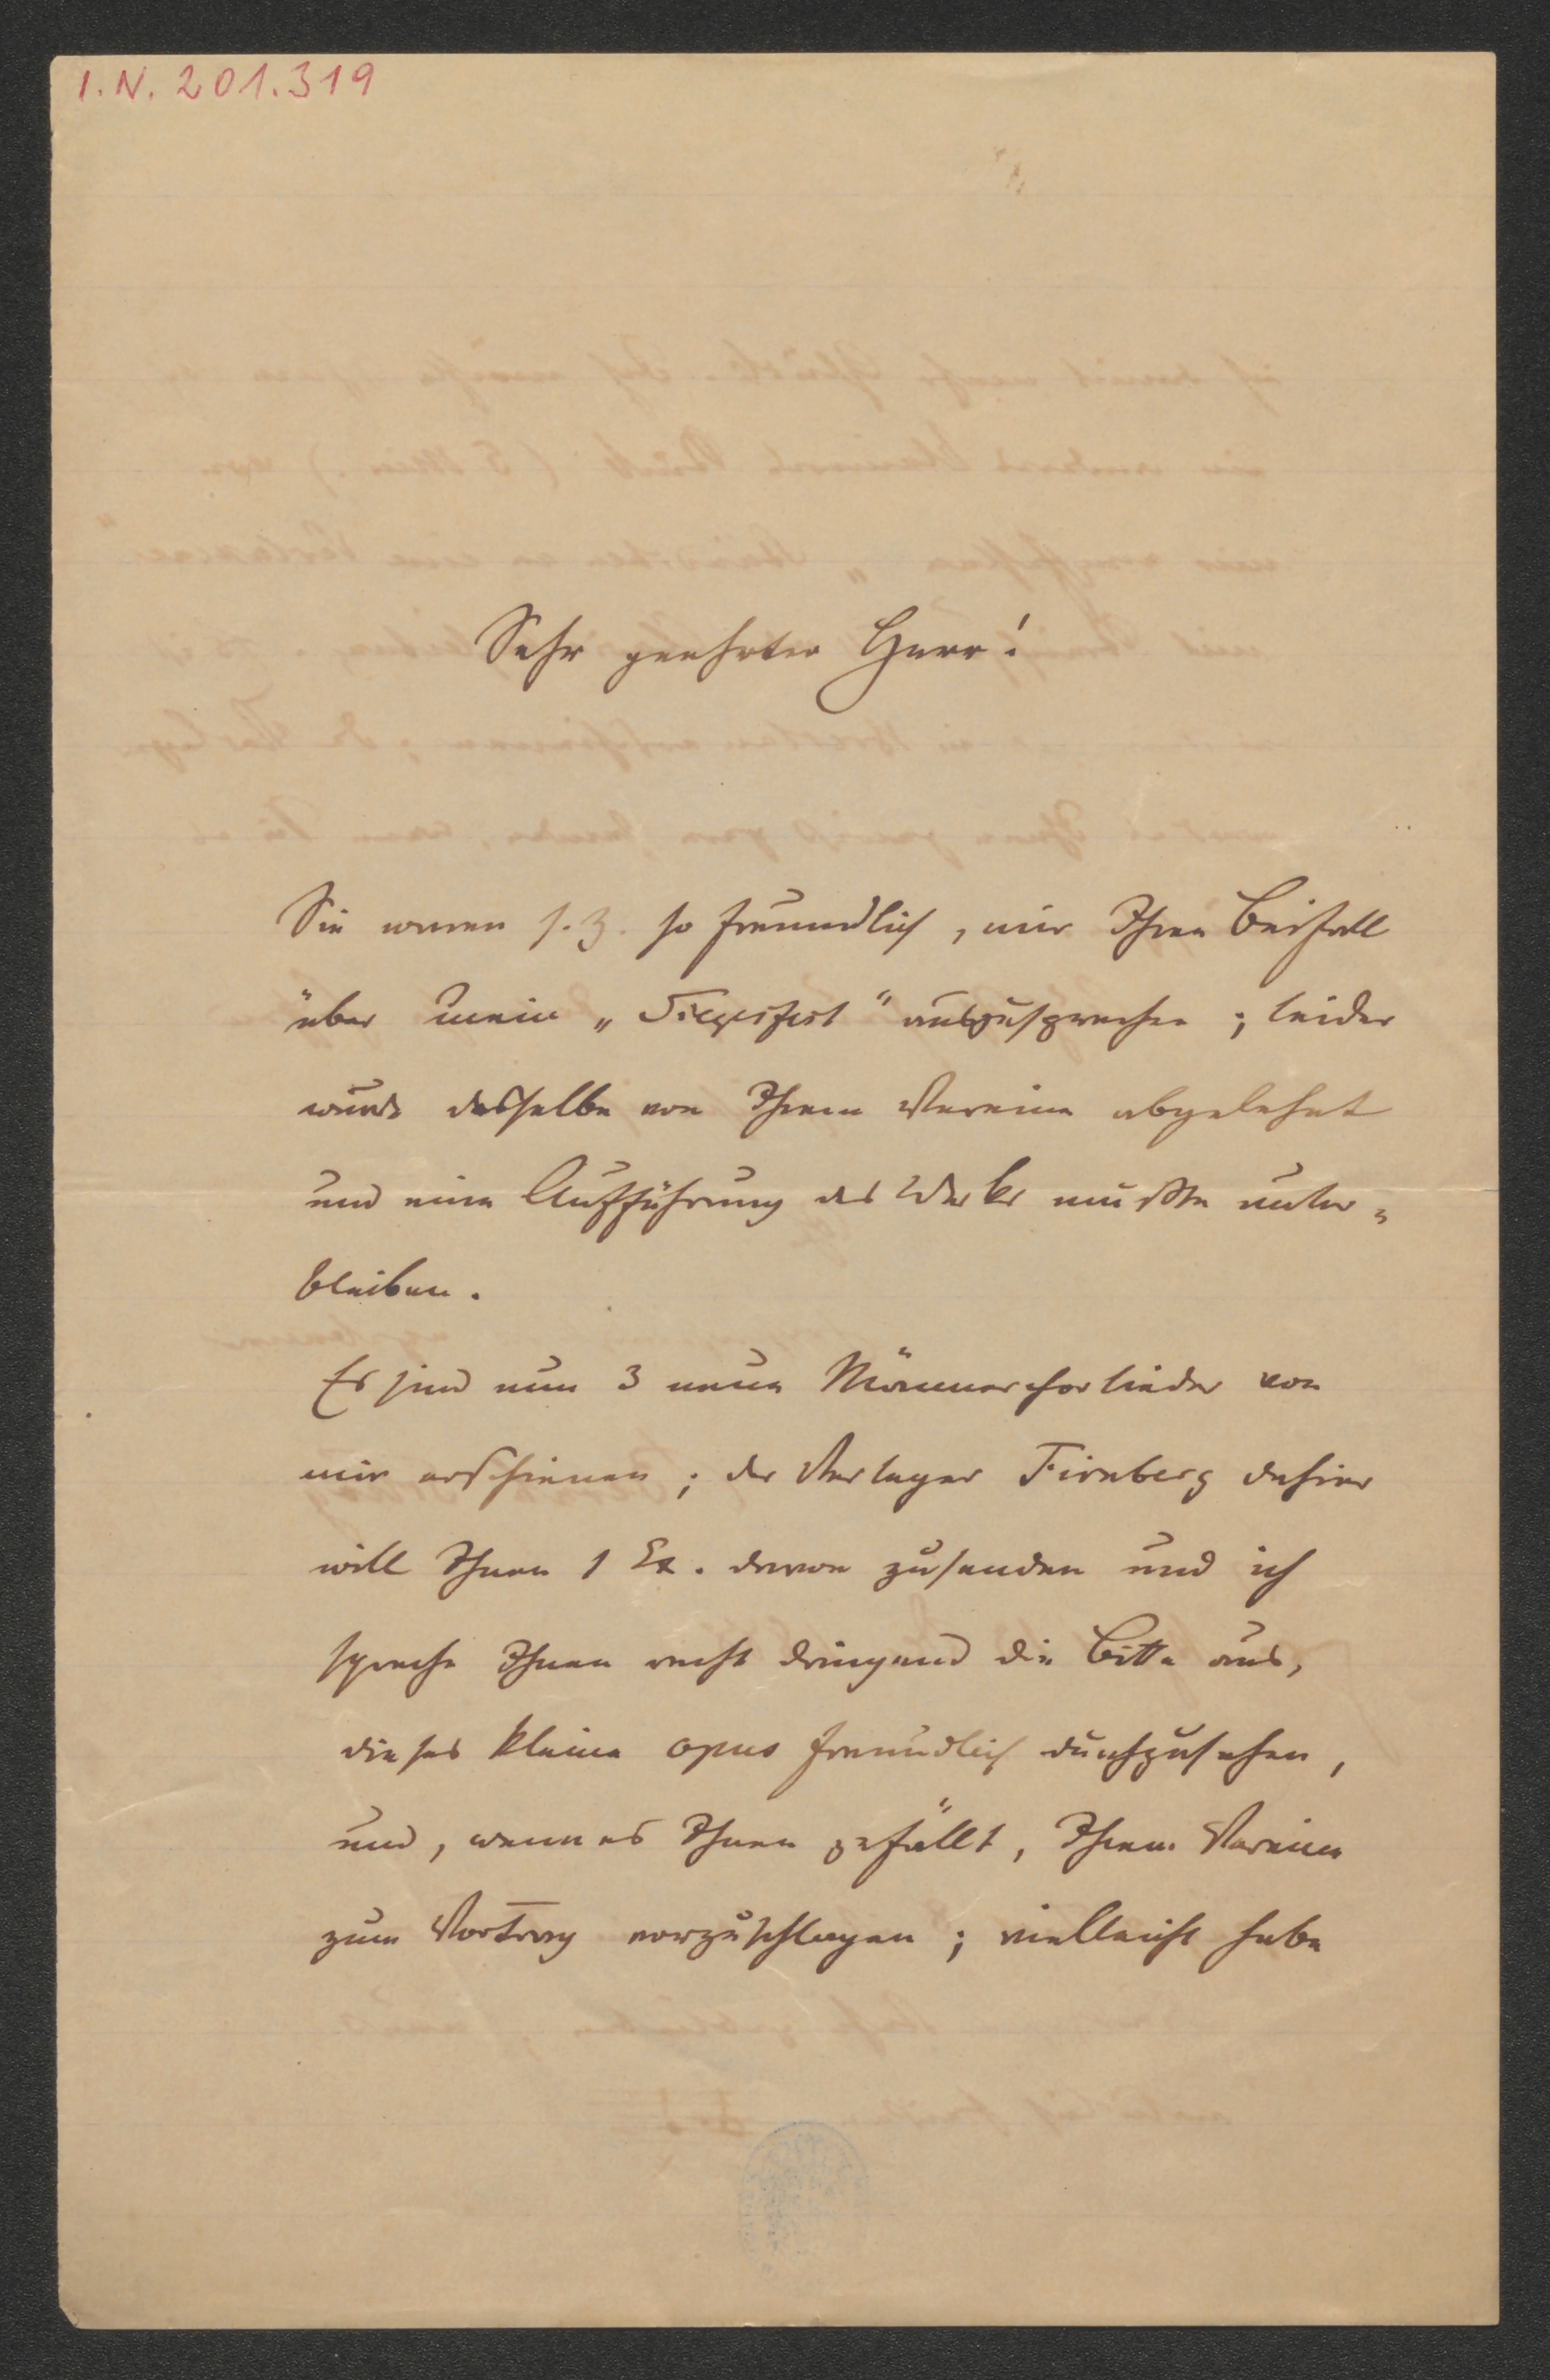 I.N. 201.319
Sehr geehrter Herr!
Sie waren s. Z. so freundlich, mir Ihren Beifall
über mein „Siegesfest“ auszusprechen; leider
wurde dasselbe von Ihrem Vereine abgelehnt
und eine Aufführung des Werkes mußte unter=
bleiben.
Es sind nun 3 neue Männerchorlieder von
mir erschienen; der Verleger Firnberg dahier
will Ihnen 1 Ex. davon zusenden und ich
spreche Ihnen recht dringend die Bitte aus,
dieses kleine opus freundlich durchzusehen,
und, wenn es Ihnen gefällt, Ihrem Vereine
zum Vortrag vorzuschlagen; vielleicht habe